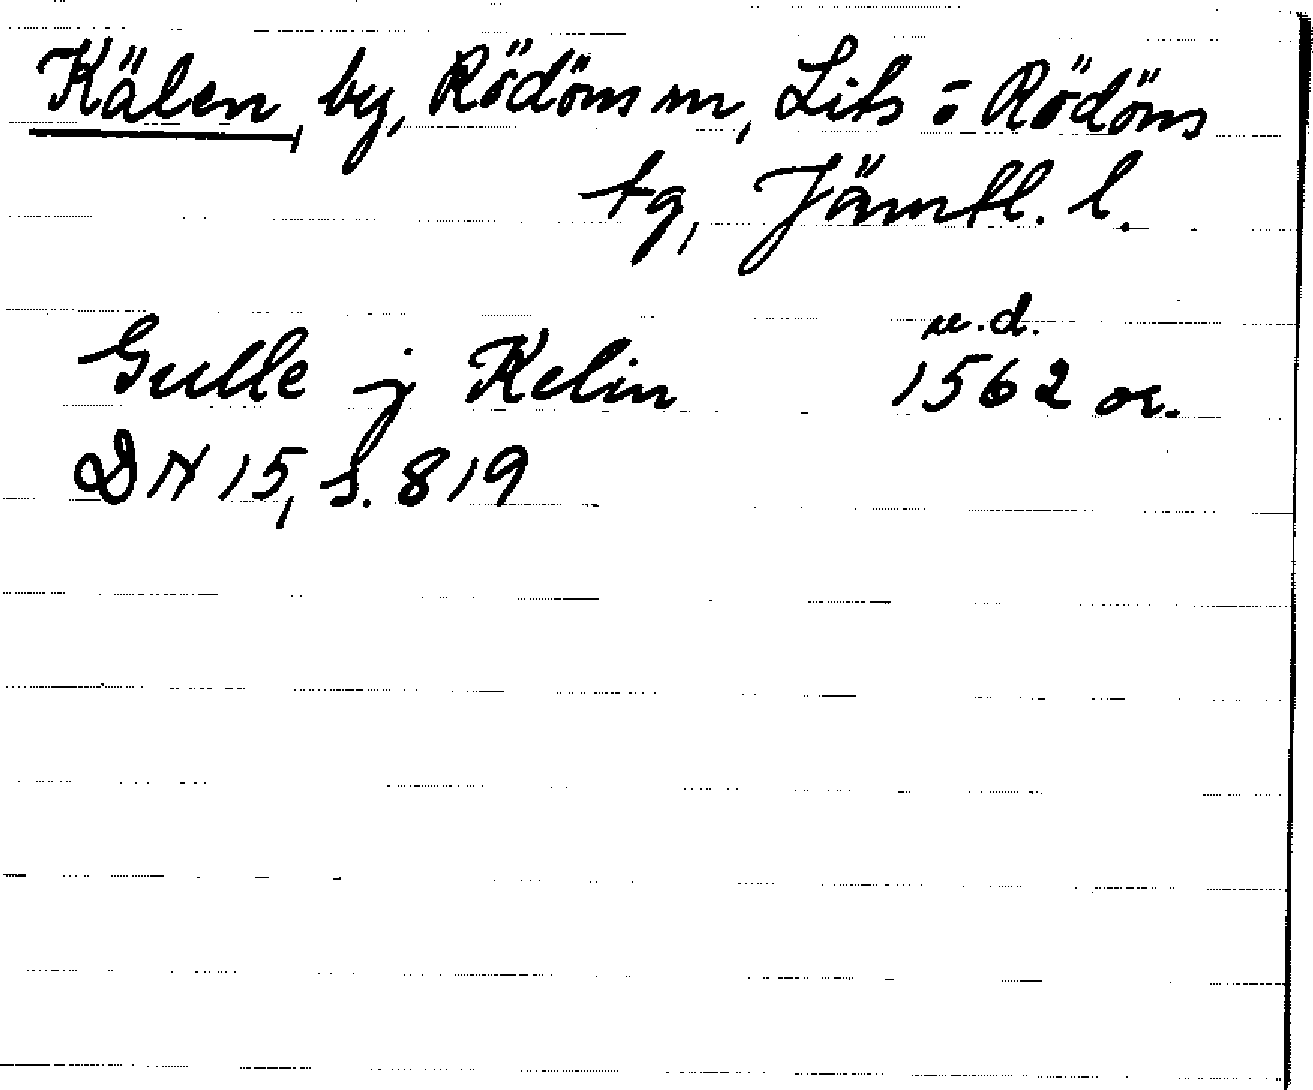 Kälen, by, Rödöns sn, Lits o Rödöns
tg, Jämtl. l.
u.d.
Gulle j Kelin 1562 or.
DN 15, s. 819